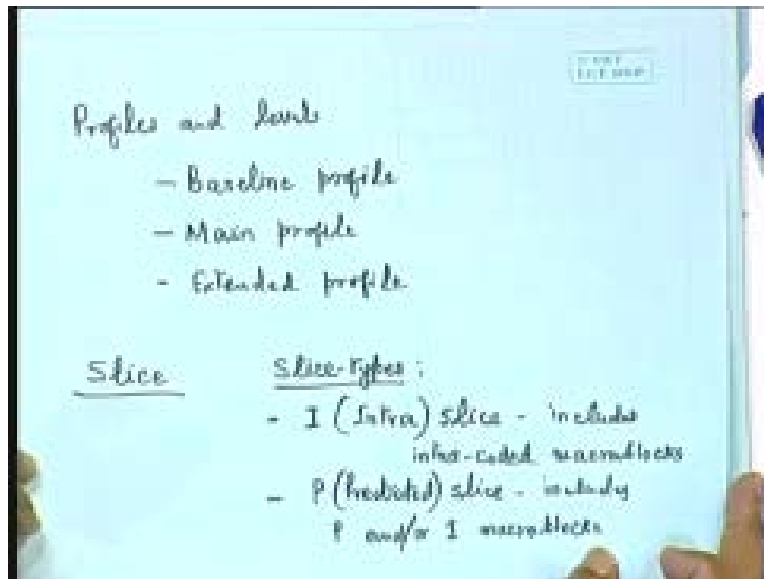 Profiles and levels
- Baseline profile
- Main profile
- Extended profile
Slice
Slice-types :
- I (Intra) slice - includes
intra-coded macroblocks
- P (Predicted) slice - includes
P and/or I macroblocks